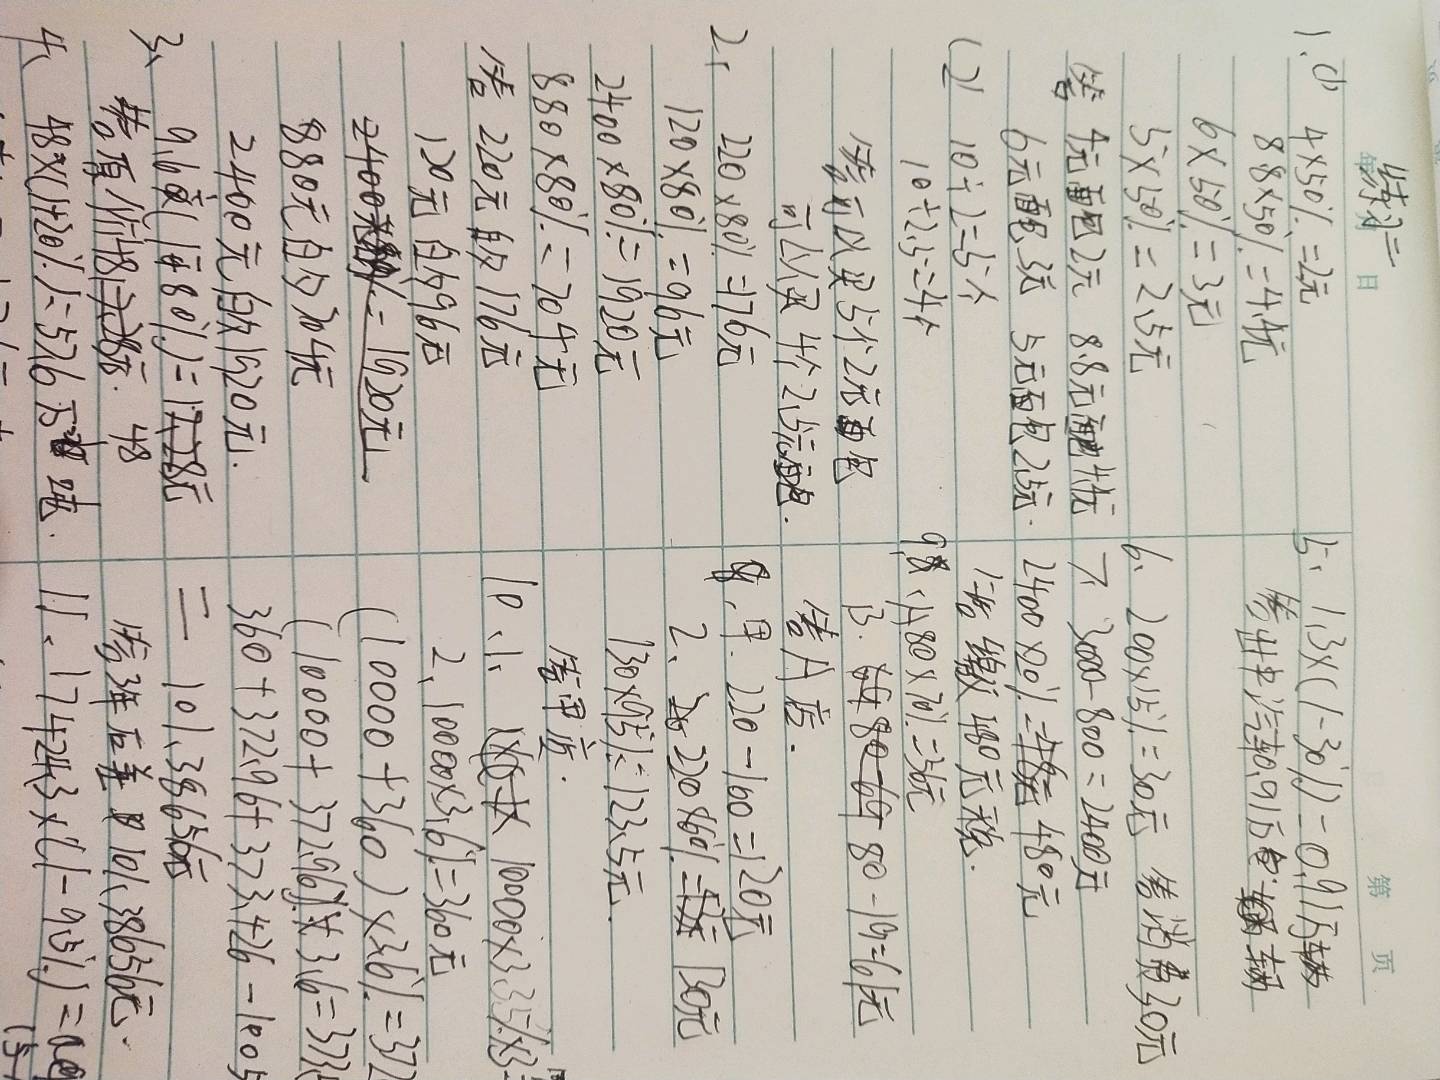 练习二
日
第 页
1、(1) 4×50%=2元
8.8×50%=4.4元
6×50%=3元
5×50%=2.5元
答 4元面包2元 8.8元面包4.4元
6元面包3元 5元面包2.5元.
(2) 10÷2=5个
10÷2.5=4个
答可以买5个2元面包
可以买4个2.5元面包.
2、220×80%=176元
120×80%=96元
2400×80%=1920元
880×80%=704元
答 220元的176元
120元的96元
880元的704元
2400元的1920元.
3、9.6÷(1-80%)=
答原价48元.
4、48×(1+20%)=57.6万吨.
5、1.3×(1-30%)=0.91万辆
答生产汽车0.91万辆
6、200×15%=30元 答消费30元
7、3000-800=2400元
2400×20%=480元
1=答缴480元税.
9、A.80×70%=56元
B. 80-19=61元
答A店.
8、1、甲. 220-100=120元
2、220×60%=130元
130×95%=123.5元.
答甲店.
10、1、10000×3.35%×3=
2、10000×3.6%=360元
(10000+360)×3.6%=372
(10000+372.96)×3.6=373.4
360+372.96+373.426-1005
= 101.38656元
答3年后差 101.38656元.
11、17.4243×(1-95%)=